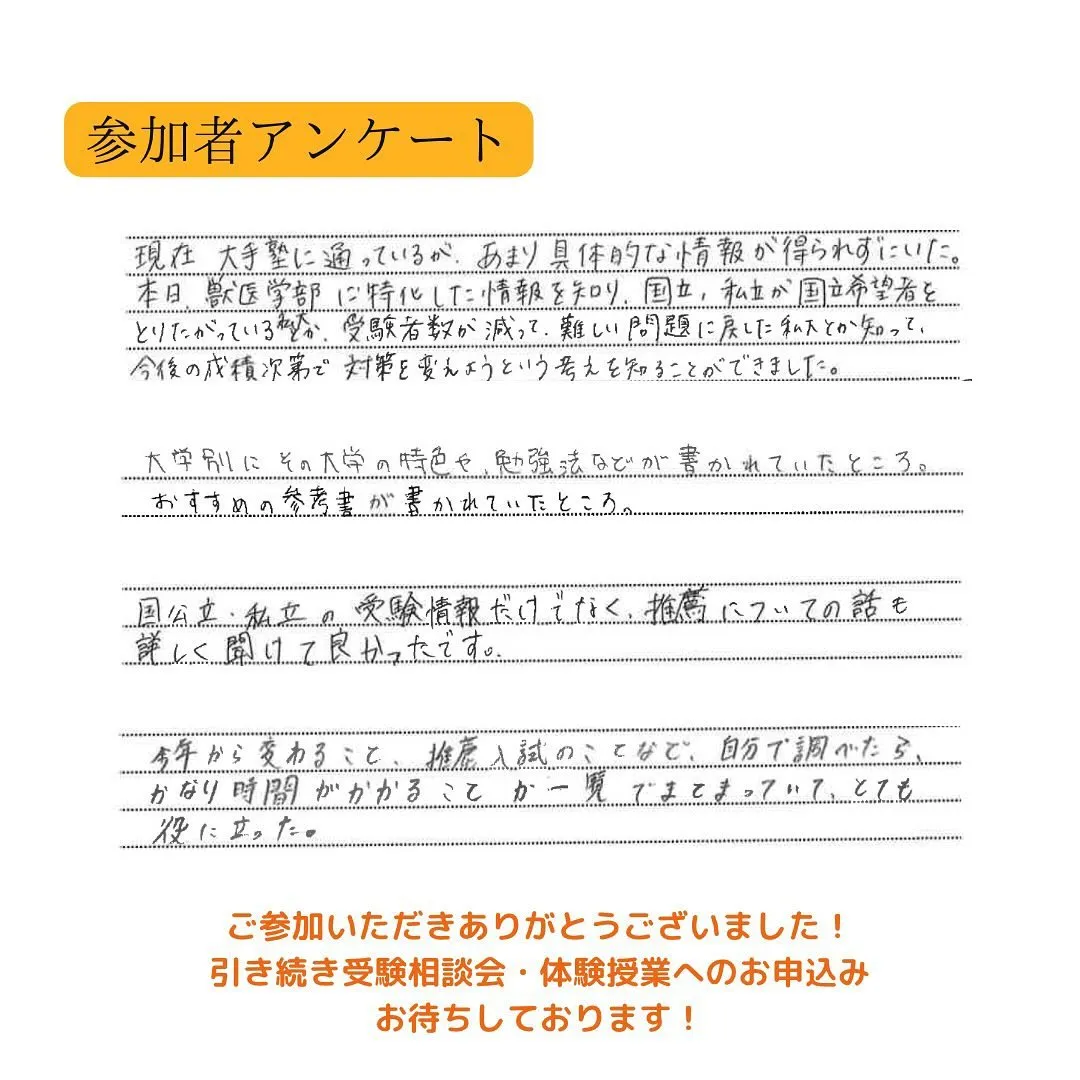 参加者アンケート
現在 大手塾に通っているが、あまり具体的な情報が得られずにいた。
本日、獣医学部に特化した情報を知り、国立、私立が国立希望者を
とりたがっている私大とか、受験者数が減って、難しい問題に戻した私大とか知って、
今後の成積次第で対策を変えようという考えを知ることができました。
大学別にその大学の特色や、勉強法などが書かれていたところ。
おすすめの参考書が書かれていたところ。
国公立・私立の受験情報だけでなく、推薦についての話も
詳しく聞けて良かったです。
今年から変わること、推薦入試のことなど、自分で調べたら、
かなり時間がかかることが一覧でまとまっていて、とても
役に立った。
ご参加いただきありがとうございました！
引き続き受験相談会・体験授業へのお申込み
お待ちしております！